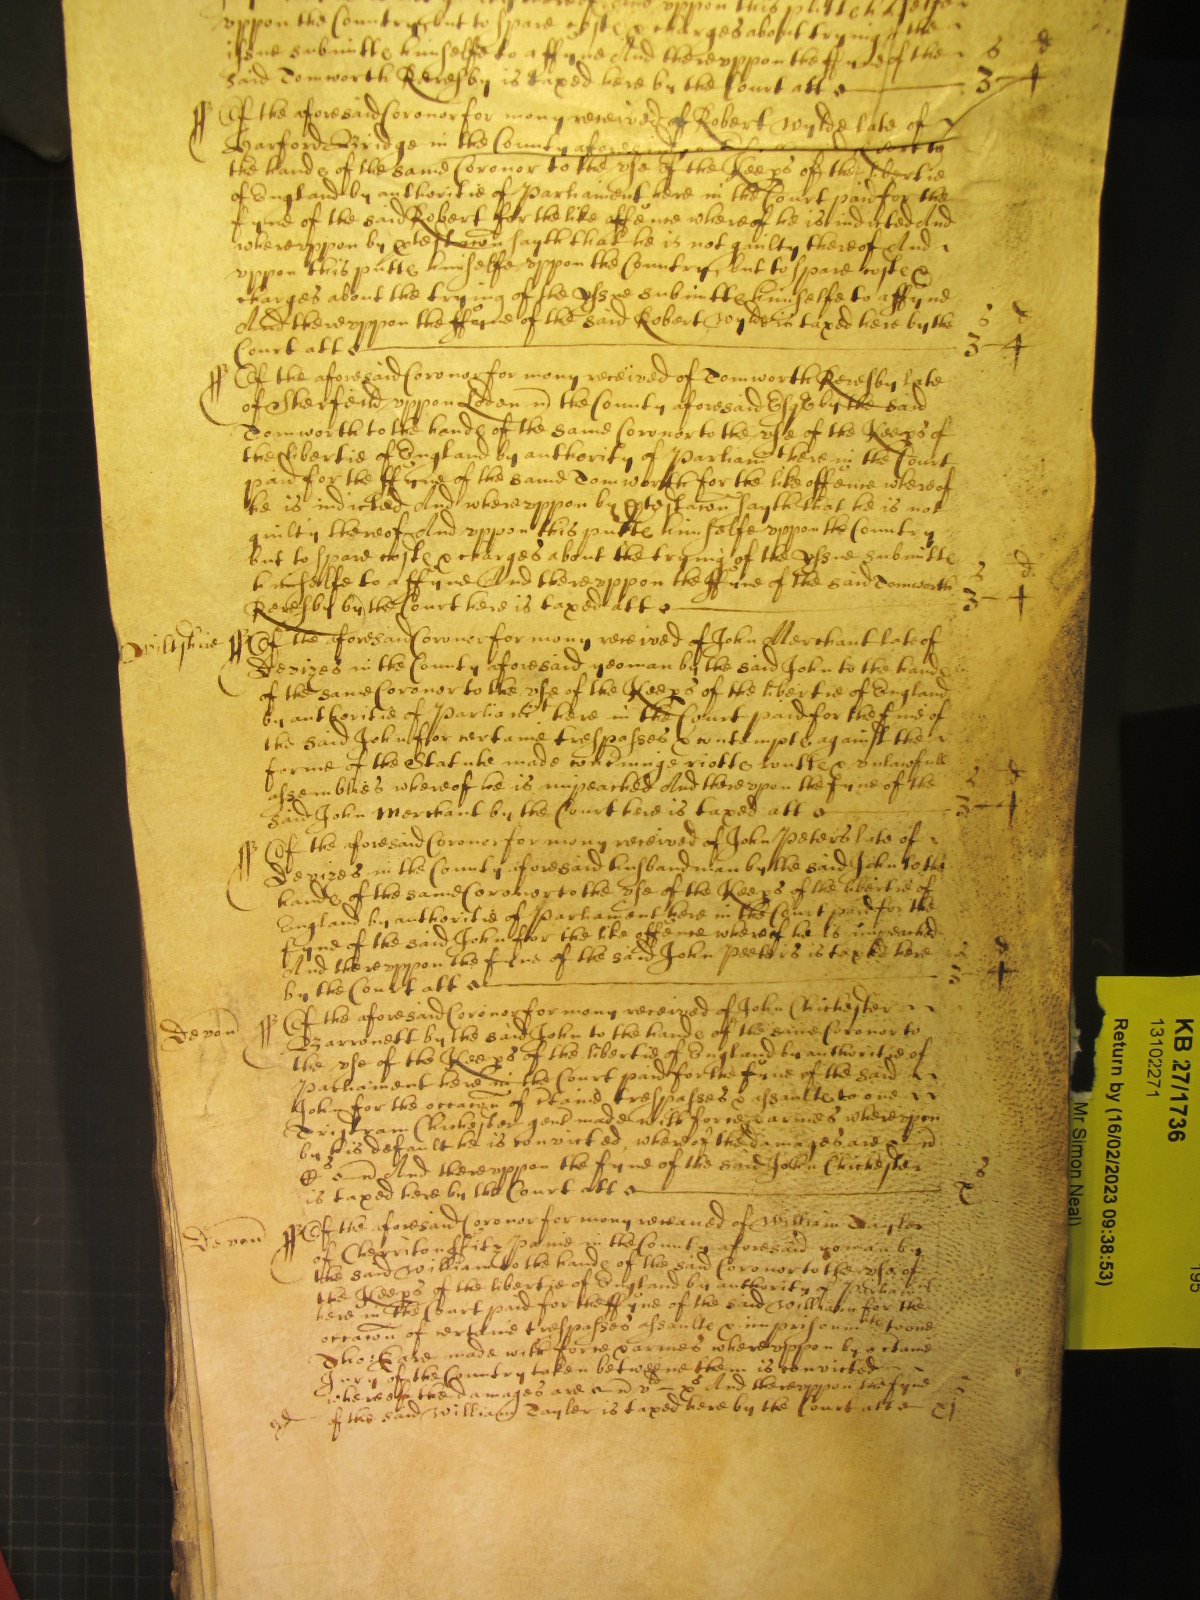 uppon the Country but to spare coste & charges about trying of the
issue submitte himselfe to a ffyne And thereuppon the ffyne of the s d
said Tomworth Reresby is taxed here by the Court att 3 4
Of the aforesaid Coronor for mony received of Robert Wylde late of
Barford Bridge in the County aforesaid
the hande of the same Coronor to the use of the Keeps of the libertie
of England by authoritie of Parliament here in the Court paid for the
fyne of the said Robert for the like offence whereof he is indicted And
whereuppon by ptestacon sayth that he is not guilty thereof And
uppon this putte himselfe uppon the Country but to spare coste &
charges about the trying of the yssue submitte himselfe to a ffyne
And thereuppon the ffyne of the said Robert Wylde is taxed here by the s d
Court att 3 4
Of the aforesaid Coronor for mony received of Tomworth Reresby late
of Sherfeild uppon Loden in the County aforesaid Esqr by the said
Tomworth to the hande of the same Coronor to the use of the Keeps of
the libertie of England by authority of Parliamt here in the Court
paid for the ffyne of the same Tomworth for the like offence whereof
he is indicted And whereuppon by ptestacon sayth that he is not
guilty thereof And uppon this putte himselfe uppon the Country
but to spare coste & charges about the trying of the yssue submitte
himselfe to a ffyne And thereuppon the ffyne of the said Tomworth s d
Reresby by the Court here is taxed att 3 4
Wiltshire Of the aforesaid Coronor for mony received of John Merchant late of
Devizes in the County aforesaid yeoman by the said John to the hande
of the same Coronor to the use of the Keeps of the libertie of England
by authoritie of Parliamt here in the Court paid for the fyne of
the said John for certaine trespasses & contempte against the
forme of the Statute made concerninge riotte routte & unlawfull
assemblies whereof he is impeached And thereuppon the fyne of the s d
said John Merchant by the Court here is taxed att 3 4
Of the aforesaid Coronor for mony received of John Peters late of
Devizes in the County aforesaid husbandman by the said John to the
hande of the same Coronor to the use of the Keeps of the libertie of
England by authoritie of Parliament here in the Court paid for the
fyne of the said John for the like offence whereof he is impeached
And thereuppon the fyne of the said John Peeters is taxed here s d
by the Court att 3 4
Devon Of the aforesaid Coronor for mony received of John Chichester
Barronett by the said John to the hande of the same Coronor to
the use of the Keeps of the libertie of England by authoritie of
Parliament here in the Court paid for the fyne of the said
John for the occacon of ctaine trespasses & assaulte to one
Tristram Chichester gent made with force & armes whereupon
by his default he is convicted whereof the damages are
And thereuppon the fyne of the said John Chichester s
is taxed here by the Court att x
Devon Of the aforesaid Coronor for mony receaved of William Tayler
of Cherriton Fitz Paine in the County aforesaid yoman by
the said William to the hande of the said Coronor to the use of
the Keeps of the libertie of England by authority of Parliamt
here in the Court paid for the ffyne of the said William for the
occacon of certaine trespasses assaulte & imprisonmte to one
Tho: made with force & armes whereuppon by a ctaine
Jury of the Country taken betweene them is convicted
whereof the damages are And thereuppon the fyne s
of the said William Tayler is taxed here by the Court att xj
KB 27/1736
13102271
Return by (16/02/2023 09:38:53)
Mr Simon Neal
195